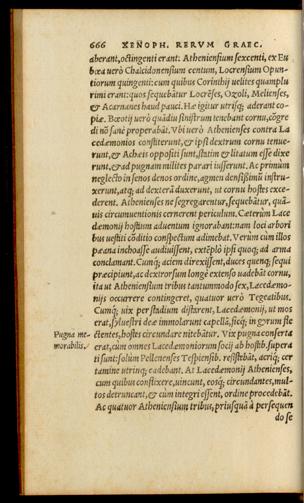 666 XENOPH. RERVM GRAEC.
aberant, octingenti erant. Atheniensium sexcenti, ex Eu
bœa uerò Chalcidonensium centum, Locrensium Opun-
tiorum quingenti: cum quibus Corinthij uelites quamplu
rimi erant: quos sequebãtur Locrẽses, Ozoli, Melienses,
& Acarnanes haud pauci. Hæ igitur utrisq; aderant co-
piæ. Bœotij uerò quãdiu sinistrum tenebant cornu, cõgre
di nõ sanè properabãt. Vbi uerò Athenienses contra La
cedæmonios constiterunt, & ipsi dextrum cornu tenue-
runt, & Achæis oppositi sunt, statim & litatum esse dixe
runt, & ad pugnam milites parari iusserunt. Ac primùm
neglecto in senos denos ordine, agmen densißimũ instru-
xerunt, atq; ad dexterã duxerunt, ut cornu hostes exce-
derent. Athenienses ne segregarentur, sequebãtur, quã-
uis circumuentionis cernerent periculum. Cæterùm Lace
dæmonij hostium aduentum ignorabant: nam loci arbori
bus uestiti cõditio conspectum adimebat. Verùm cùm illos
pæana inchoasse audiuissent, extẽplò ipsi quoq; ad arma
conclamant. Cumq; aciem direxissent, duces quenq; sequi
præcipiunt, ac dextrorsum longè extenso uadebãt cornu,
ita ut Atheniensium tribus tantummodo sex, Lacedæmo-
nijs occurrere contingeret, quatuor uerò Tegeatibus.
Cumq; uix per stadium distarent, Lacedæmonij, ut mos
erat, syluestri deæ immolarunt capellã, sicq; in gyrum fle
Pugna me- ctentes, hostes circundare nitebãtur. Vix pugna conserta
morabilis. erat, cùm omnes Lacedæmoniorum socij ab hostib. supera
ti sunt: solùm Pellenenses Tespiensib. resistebãt, acriq; cer
tamine utrinq; cadebant. At Lacedæmonij Athenienses,
cum quibus conflixere, uincunt, eosq; circundantes, mul-
tos detruncant, & cùm integri essent, ordine procedebãt.
Ac quatuor Atheniensium tribus, priusquã à persequen
do se